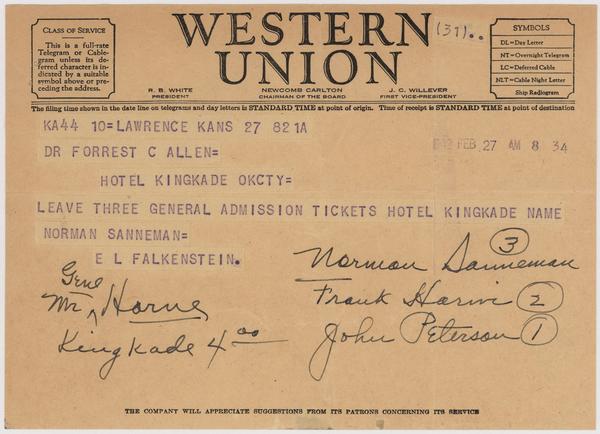 CLASS OF SERVICE
This is a full-rate
Telegram or Cable-
gram unless its de-
ferred character is in-
dicated by a suitable
symbol above or pre-
ceding the address.
WESTERN
UNION
(31)..
SYMBOLS
DL=Day Letter
NT=Overnight Telegram
LC=Deferred Cable
NLT=Cable Night Letter
Ship Radiogram
R. B. WHITE
PRESIDENT
NEWCOMB CARLTON
CHAIRMAN OF THE BOARD
J. C. WILLEVER
FIRST VICE-PRESIDENT
The filing time shown in the date line on telegrams and day letters is STANDARD TIME at point of origin. Time of receipt is STANDARD TIME at point of destination
KA44 10=LAWRENCE KANS 27 821A
DR FORREST C ALLEN=
FEB 27 AM 8 34
HOTEL KINGKADE OKCTY=
LEAVE THREE GENERAL ADMISSION TICKETS HOTEL KINGKADE NAME
NORMAN SANNEMAN=
E L FALKENSTEIN.
Gene
Mr ^ Horne
Kingkade 4 00
Norman Sanneman 3
Frank 2
John Peterson 1
THE COMPANY WILL APPRECIATE SUGGESTIONS FROM ITS PATRONS CONCERNING ITS SERVICE